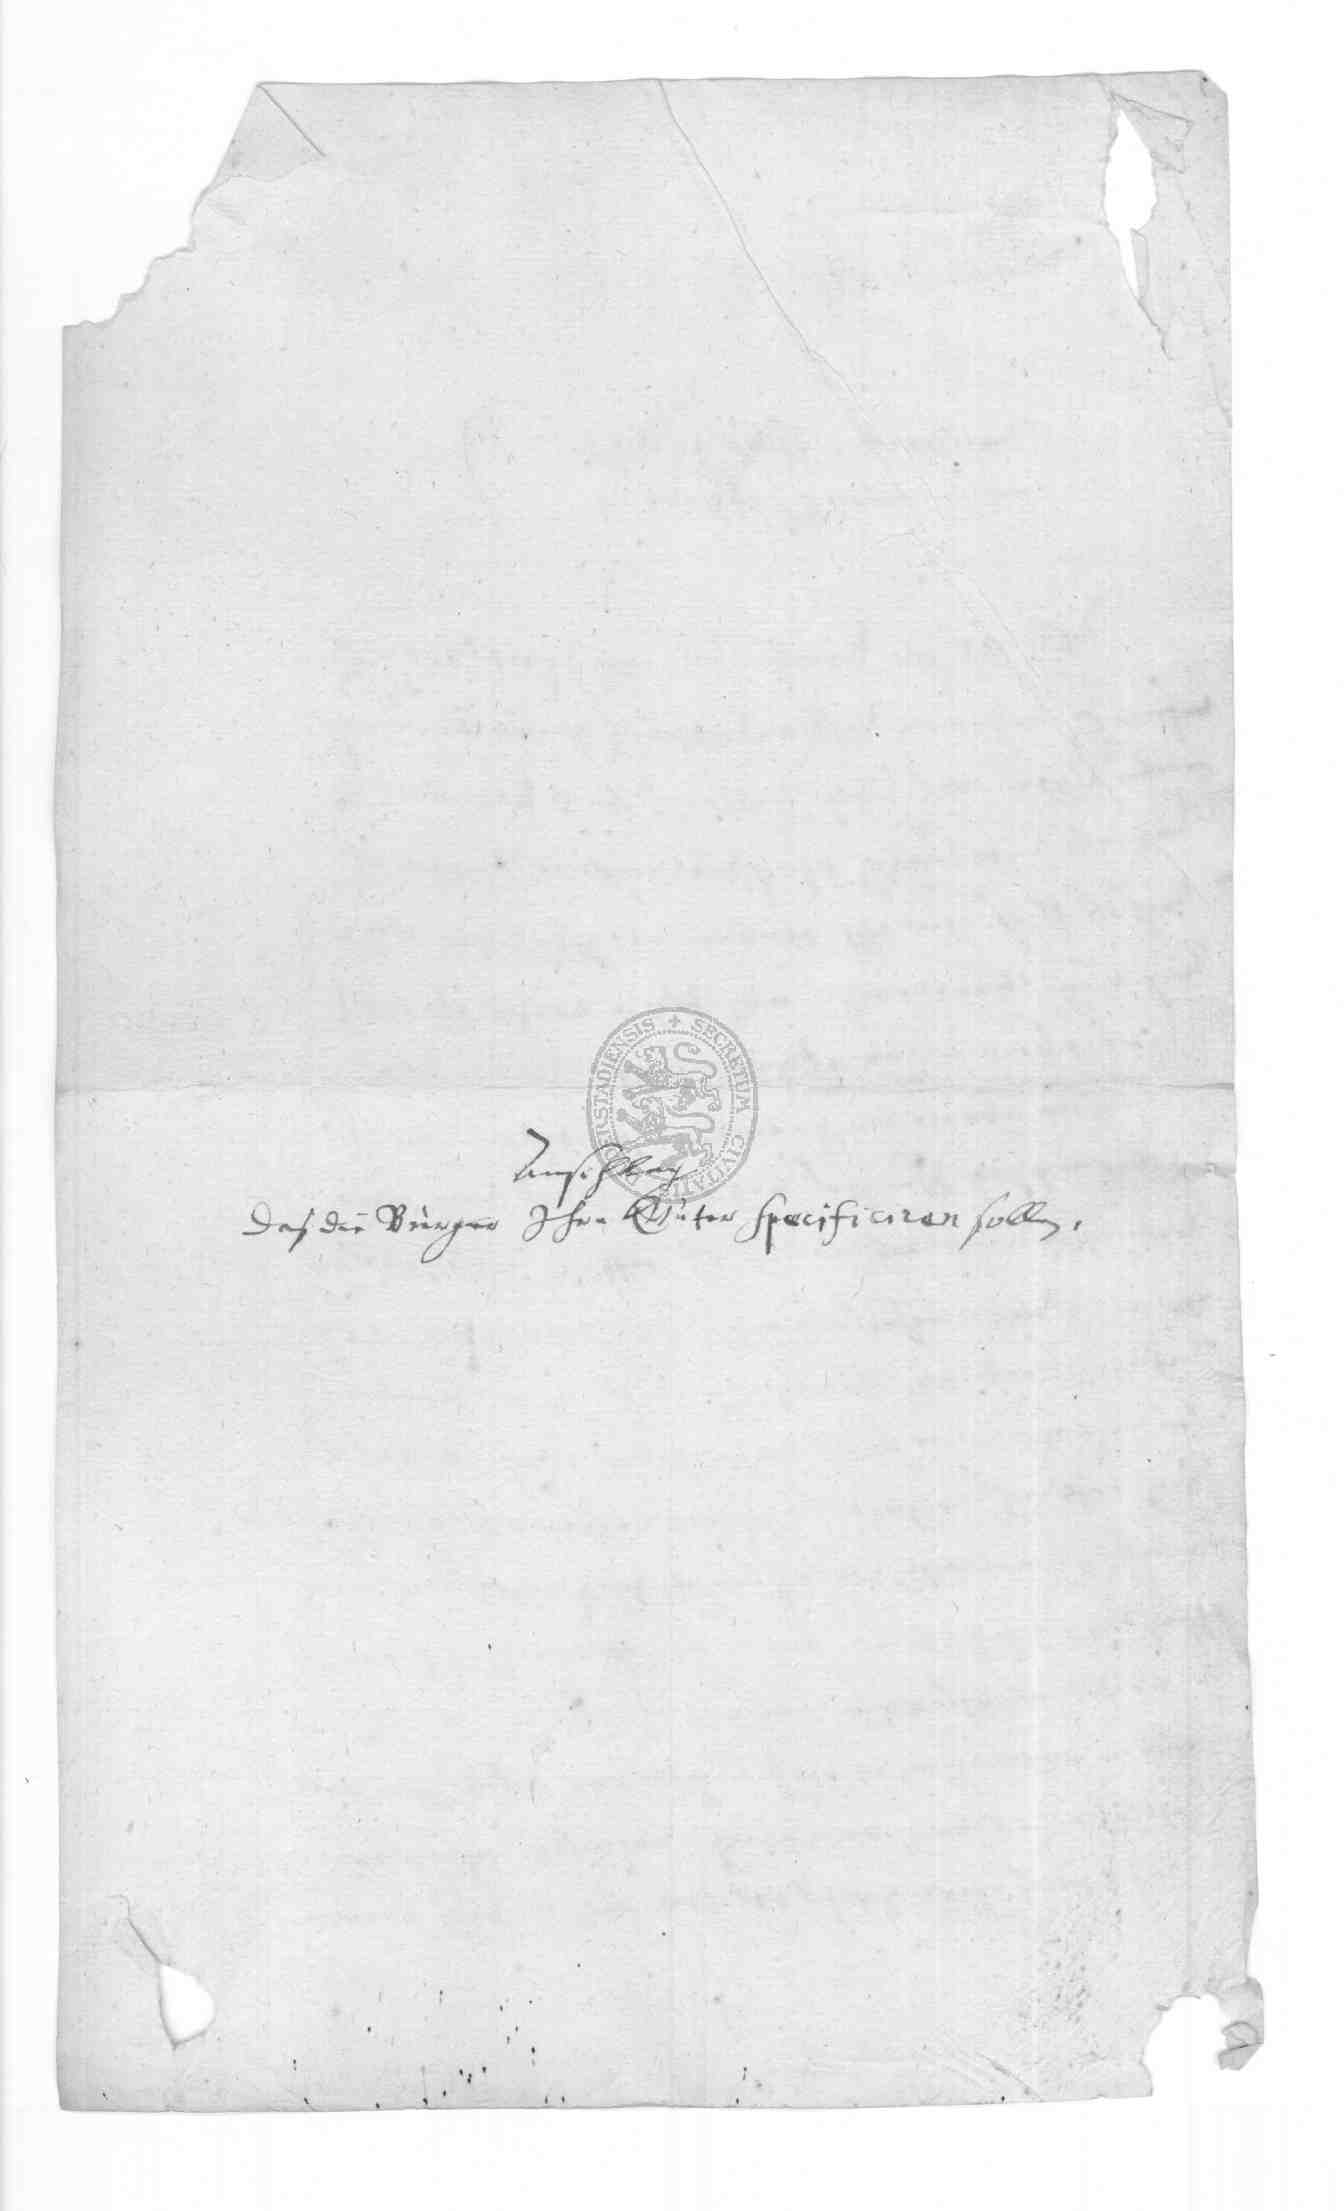 SECRETUM CIVITATIS DUDERSTADIENSIS
Anschlag
Daß die Bürger Ihre Güter specificiren sollen.